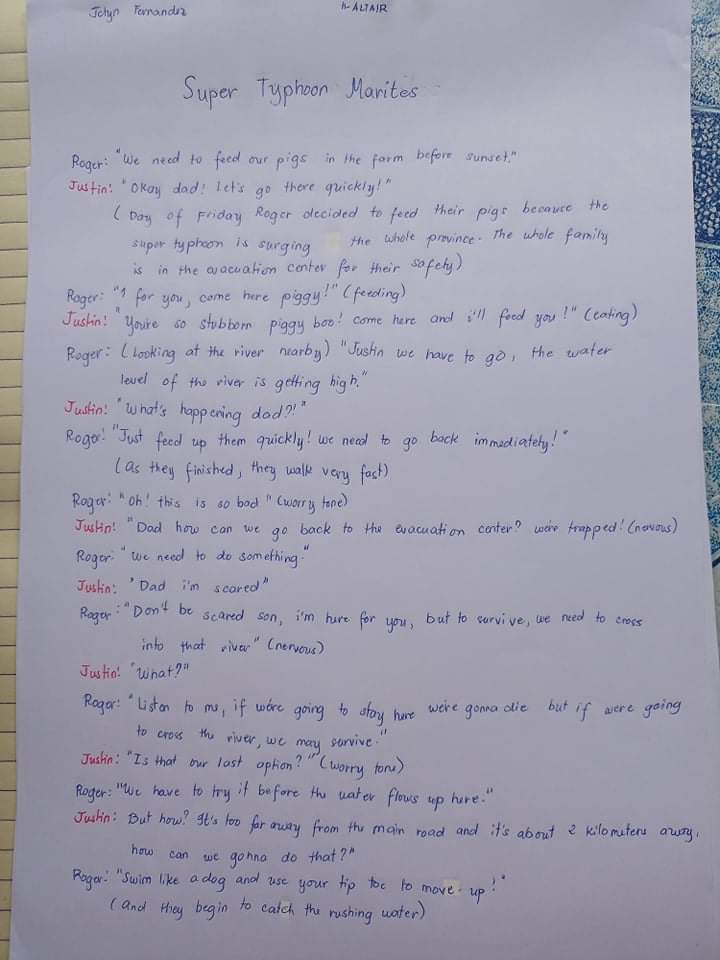 Jelyn Fernandez
11-ALTAIR
Super Typhoon Marites
Roger: "We need to feed our pigs in the farm before sunset."
Justin: "Okay dad! Let's go there quickly!"
( Day of Friday Roger decided to feed their pigs because the
super typhoon is surging the whole province. The whole family
is in the evacuation center for their safety)
Roger: "1 for you, come here piggy!" (feeding)
Justin: "You're so stubborn piggy boo! come here and i'll feed you!" (eating)
Roger: (Looking at the river nearby) "Justin we have to go, the water
level of the river is getting high."
Justin: "What's happening dad?!"
Roger: "Just feed up them quickly! we need to go back immediately!"
(as they finished, they walk very fast)
Roger: "Oh! this is so bad" (worry tone)
Justin: "Dad how can we go back to the evacuation center? we're trapped! (nervous)
Roger: "We need to do something."
Justin: "Dad i'm scared"
Roger: "Don't be scared son, i'm here for you, but to survive, we need to cross
into that river" (nervous)
Justin: "What?"
Roger: "Listen to me, if we're going to stay here we're gonna die but if we're going
to cross the river, we may survive."
Justin: "Is that our last option?" (worry tone)
Roger: "We have to try it before the water flows up here."
Justin: But how? It's too far away from the main road and it's about 2 kilometers away,
how can we gonna do that?"
Roger: "Swim like a dog and use your tip toe to move up!"
(and they begin to catch the rushing water)